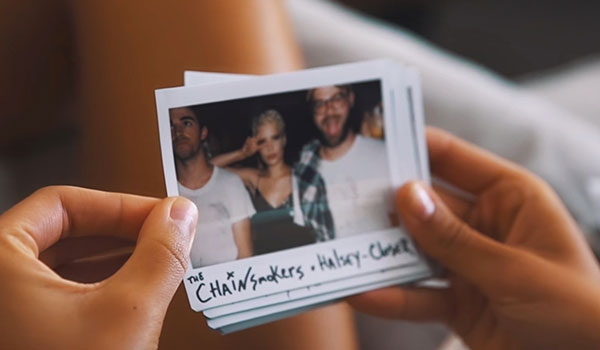 THE
CHAINSMOKERS + HALSEY - CLOSER